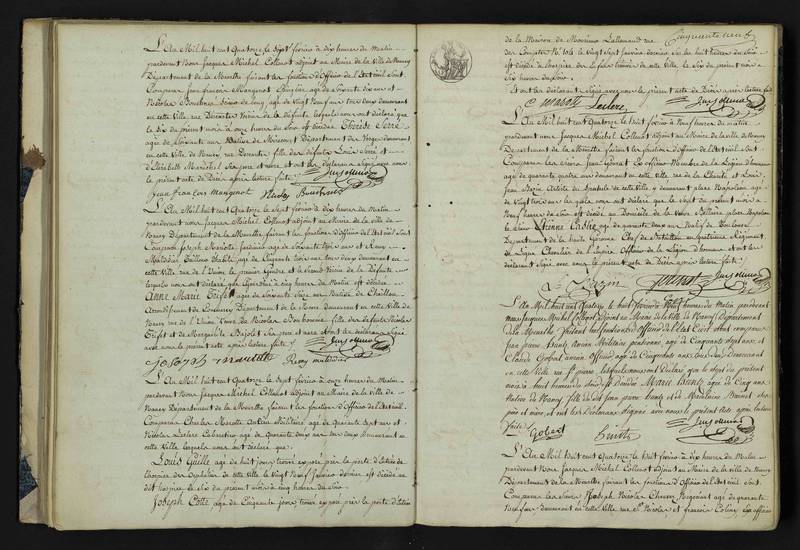 L'An Mil huit cent Quatorze, le Sept février à dix heures du Matin
pardevant Nous Jacques Michel Collenot adjoint au Maire de la Ville de Nancy
Département de la Meurthe faisant les fonctions d'Officier de l'Etat civil Sont
Comparus Jean françois Mangenot agé de Soixante dix ans et
Nicolas agé de vingt Neuf ans tous deux demeurant
en cette Ville rue de la défunte lesquels nous ont déclaré que
le Six du présent mois à onze heures du Soir est décédée Thérèse Serré
agée de Soixante ans Native de Mirecourt Département des Vosges demeurant
en cette Ville de Nancy, rue fille des défunts Louis Serré et
d'Elisabeth Maréchal Ses père et mère et ont les déclarans Signé avec nous
le présent acte de Décès après lecture faite
Jean François Mangenot Nicolas
L'An Mil huit cent Quatorze le Sept février à dix heures du Matin
pardevant Nous Jacques Michel Collenot adjoint au Maire de la ville de
Nancy Département de la Meurthe faisant les fonctions d'Officier de l'Etat civil Sont
Comparus Joseph Mariotte Jardinier agé de Soixante trois ans et Remy
Mathieu agé de Cinquante trois ans tous deux demeurant en
cette Ville rue de l'Union le premier gendre et le Second Voisin de la défunte
lesquels nous ont déclaré que à cinq heures du Matin est décédée
Anne Marie agée de Soixante ans Native de Chaillon
Arrondissement de Commercy Département de la Meuse demeurant en cette Ville de
Nancy rue de l'Union Veuve de Nicolas Bonhomme fille des défunts Nicolas
et de Marguerite Ses père et mère et ont les déclarans Signé
avec nous le présent acte de Décès après lecture faite
joseph mariotte Remy mathieu
L'An Mil huit cent Quatorze le Sept février à onze heures du Matin
pardevant Nous Jacques Michel Collenot adjoint au Maire de la ville de
Nancy Département de la Meurthe faisant les fonctions d'Officier de l'Etat civil
Comparus Charles Marotte Ancien Militaire agé de Quarante Sept ans et
Nicolas Leclerc agé de Quarante deux ans tous deux Demeurant en
cette Ville lesquels nous ont déclaré que
Louis Guille agé de huit jours trouvé exposé près la porte d'Entrée de
l'hospice des Orphelins de cette Ville le vingt Neuf Janvier dernier est décédé au
dit hospice le Six du présent mois à cinq heures du Soir
Joseph Cotte agé de Cinquante jours trouvé exposé près la porte d'Entrée
Cinquante neuf
de la Maison de Monsieur Lallemand rue
des Comptes N° 104 le Vingt Sept Janvier dernier Sur les huit heures du Soir
est décédé à l'hospice des Enfans trouvés de cette Ville, le Six du présent mois à
Six heures du Soir
Et ont les déclarans Signé avec nous le présent acte de Décès après lecture faite
C marotte Leclerc
L'An Mil huit cent Quatorze le huit février à Neuf heures du matin
pardevant nous Jacques Michel Collenot adjoint au Maire de la ville de Nancy
Département de la Meurthe faisant les fonctions d'Officier de l'Etat civil Sont
Comparus les Sieurs Jean Ex officier Membre de la Légion d'honneur
agé de quarante quatre ans demeurant en cette ville rue de la Charité et Louis
Jean Bazin Artiste du Spectacle de cette Ville y demeurant place Napoléon agé
de Vingt trois ans lesquels nous ont déclaré que le Sept du présent mois à
Neuf heures du Soir est décédé au Domicile de la Veuve place Napoléon
le Sieur Etienne agé de quarante deux ans Natif de Toulouse
Département de la haute Garonne Chef de Bataillon au quatrième Régiment
de Ligne Chevalier de l'ordre Officier de la Légion d'honneur et ont les
déclarans Signé avec nous le présent acte de Décès après lecture faite
L Bazin
L'An Mil huit cent Quatorze le huit février à dix heures du Matin pardevant
nous Jacques Michel Collenot Adjoint au Maire de la Ville de Nancy Département
de la Meurthe faisant les fonctions d'Officier de l'Etat Civil Sont comparus
Jean pierre ancien Militaire pensionné agé de Cinquante Sept ans et
Claude Gobert ancien Officier agé de Cinquante ans tous deux Demeurant
en cette ville rue St pierre lesquels nous ont Déclaré que le Sept du présent
mois à huit heures du Soir est décédée Marie agée de Cinq ans
Native de Nancy fille dudit Jean pierre et de Madelaine Ses
père et mère et ont les déclarans Signé avec nous le présent acte après lecture
faite
Gobert
L'An Mil huit cent Quatorze le huit février à dix heures du Matin
pardevant Nous Jacques Michel Collenot Adjoint au Maire de la ville de Nancy
Département de la Meurthe faisant les fonctions d'Officier de l'Etat civil Sont
Comparus les Sieurs Joseph Nicolas Négociant agé de quarante
Neuf ans demeurant en cette Ville rue St Nicolas et françois Colin Ex officier